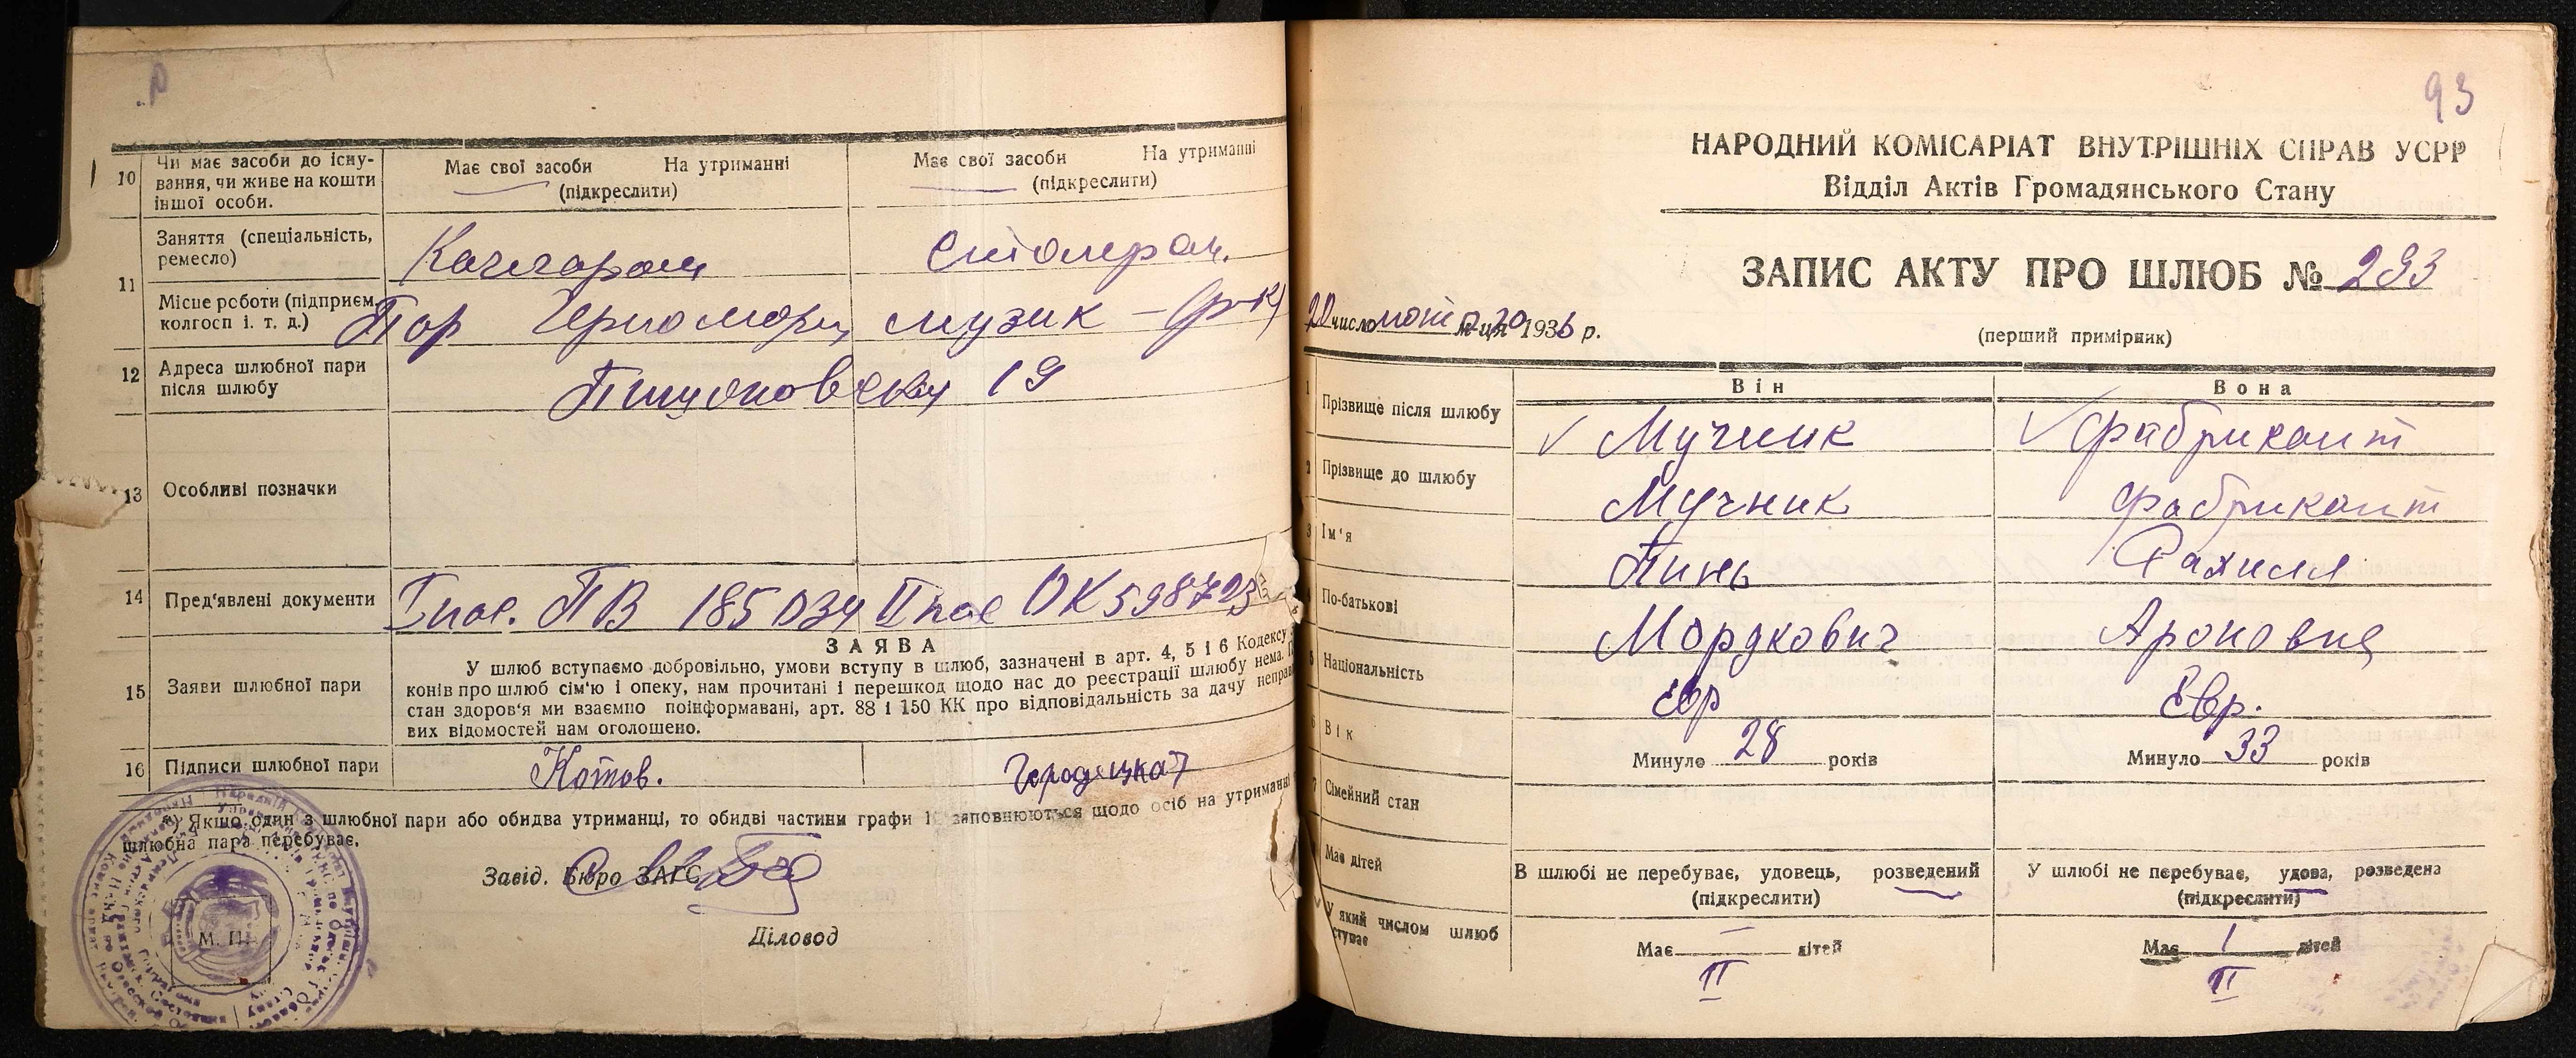 10 Чи має засоби до існу-
вання, чи живе на кошти
іншої особи.
Має свої засоби На утриманні
(підкреслити)
Має свої засоби На утриманні
(підкреслити)
11 Заняття (спеціальність,
ремесло)
Кочегаром
Столяром.
Місце роботи (підприєм.
колгосп і. т. д.)
музик - ф-к
12 Адреса шлюбної пари
після шлюбу
19
13 Особливі позначки
14 Пред'явлені документи
I пас. ПВ 185034 II пас ОК 598723
15 Заяви шлюбної пари
ЗАЯВА
У шлюб вступаємо добровільно, умови вступу в шлюб, зазначені в арт. 4, 5 і 6 Кодексу
конів про шлюб сім'ю і опеку, нам прочитані і перешкод щодо нас до реєстрації шлюбу нема.
стан здоров'я ми взаємно поінформавані, арт. 88 і 150 КК про відповідальність за дачу неправ
вих відомостей нам оголошено.
16 Підписи шлюбної пари
Котов.
Городецкая
*) Якщо один з шлюбної пари або обидва утриманці, то обидві частини графи заповнюються щодо осіб на утриманні
шлюбна пара перебуває.
Завід. Бюро ЗАГС
Діловод
М. П.
93
НАРОДНИЙ КОМІСАРІАТ ВНУТРІШНІХ СПРАВ УСРР
Відділ Актів Громадянського Стану
ЗАПИС АКТУ ПРО ШЛЮБ № 293
20 число м-ця 1936 р.
(перший примірник)
Він
Вона
1 Прізвище після шлюбу
Мучник
Фабрикант
2 Прізвище до шлюбу
Мучник
Фабрикант
3 Ім'я
Пинь
Рахиля
По-батькові
Мордкович
Ароновна
5 Національність
Евр
Евр.
6 Вік
Минуло 28 років
Минуло 33 років
7 Сімейний стан
В шлюбі не перебуває, удовець, розведений
(підкреслити)
У шлюбі не перебуває, удова, розведена
(підкреслити)
Має дітей
Має – дітей
Має 1 дітей
У який числом шлюб
ступає
II
II